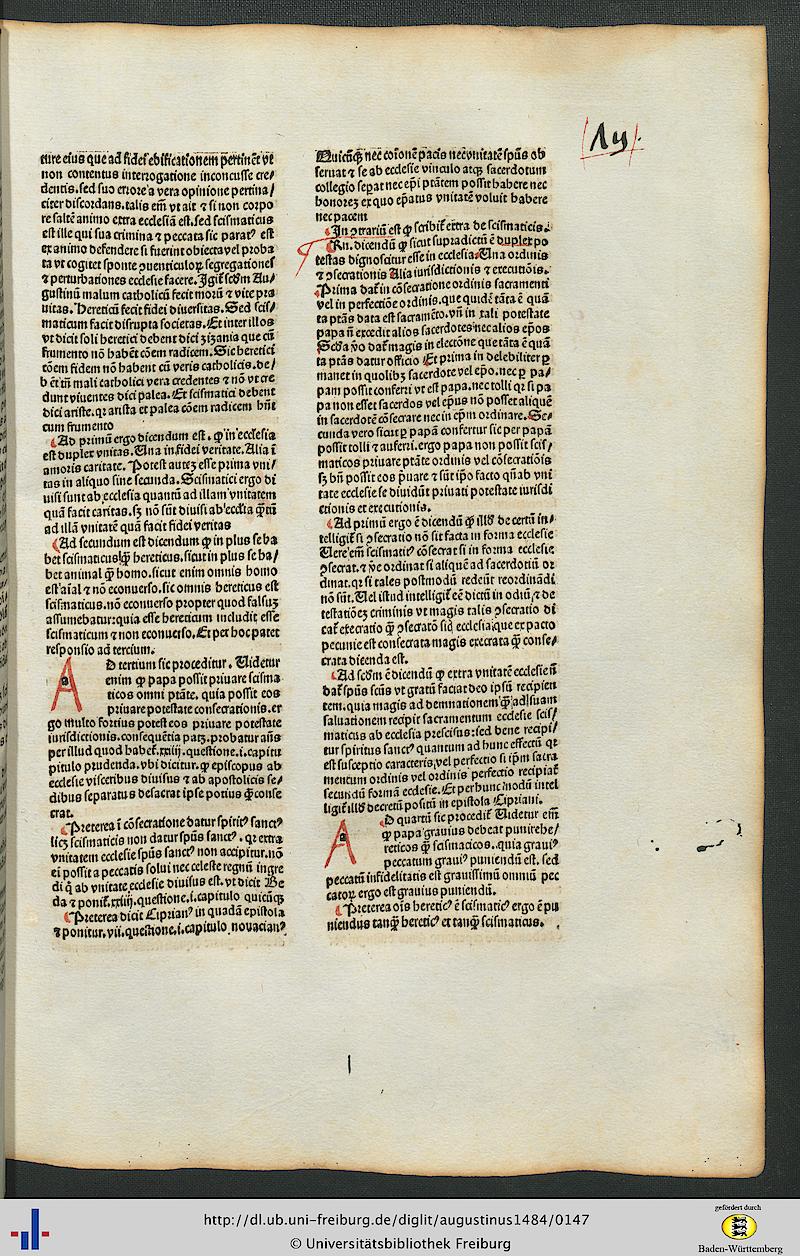 ture eius que ad fidei edificationem pertinēt vt
non contentus interrogatione inconcusse cre⸗
dentis. sed suo errore a vera opinione pertina⸗
citer discordans. talis em̄ vt ait ⁊ si non corpo
re saltē animo extra ecclesiā est. sed scismaticus
est ille qui sua crimina ⁊ peccata sic parat⁹ est
ex animo defendere si fuerint obiecta vel proba
ta vt cogitet sponte ꝯuenticuloꝝ segregationes
⁊ perturbationes ecclesie facere. Igit̄ scd̄m Au⸗
gustinū malum catholicū fecit morū ⁊ vite pra
uitas. Hereticū fecit fidei diuersitas. Sed scis⸗
maticum facit disrupta societas. Et inter illos
vt dicit soli heretici debent dici zizania que cū
frumento nō habēt cōem radicem. Sic heretici
cōem fidem nō habent cū veris catholicis. de⸗
bēt em̄ mali catholici vera credentes ⁊ nō vt cre
dunt viuentes dici palea. Et scismatici debent
dici ariste. qr arista et palea cōem radicem hn̄t
cum frumento
Ad primū ergo dicendum est. ꝙ in ecclesia
est duplex vnitas. Una in fidei veritate. Alia ī
amoris caritate. Potest autez esse prima vni⸗
tas in aliquo sine secunda. Scismatici ergo di
uisi sunt ab ecclesia quantū ad illam vnitatem
quā facit caritas. sꝫ nō sūt diuisi ab ecclīa ꝙ̄tū
ad illā vnitatē quā facit fidei veritas
Ad secundum est dicendum ꝙ in plus se ha
bet scismaticus ꝙ̄ hereticus. sicut in plus se ha⸗
bet animal ꝙ̄ homo. sicut enim omnis homo
est aīal ⁊ nō econuerso. sic omnis hereticus est
scismaticus. nō econuerso propter quod falsuz
assumebatur: quia esse hereticum includit esse
scismaticum ⁊ non econuerso. Et per hoc patet
responsio ad tercium.
A D tertium sic proceditur. Uidetur
enim ꝙ papa possit priuare scisma
ticos omni ptāte. quia possit eos
priuare potestate consecrationis. er
go multo fortius potest eos priuare potestate
iurisdictionis. consequētia patꝫ. probatur añs
per illud quod habet̄. xxiij. questione. i. capitu
pitulo prudenda. vbi dicitur. ꝙ episcopus ab
ecclesie visceribus diuisus ⁊ ab apostolicis se⸗
dibus separatus desacrat ipse potius ꝙ̄ conse
crat.
Preterea ī cōsecratione datur spirit⁹ sanct⁹
licꝫ scismaticis non datur spūs sanct⁹. qr extra
vnitatem ecclesie spūs sanct⁹ non accipitur. nō
ei possit a peccatis solui nec celeste regnū ingre
di q̇ ab vnitate ecclesie diuisus est. vt dicit Be
da ⁊ ponit̄. xxiiij. questione. i. capitulo quicūqꝫ
Preterea dicit Ciprian⁹ in quadā epistola
⁊ ponitur. vii. questione. i. capitulo nouacian⁹
Quicūqꝫ nec cōīonē pacis nec vnitatē spūs ob
seruat ⁊ se ab ecclesie vinculo atqꝫ sacerdotum
collegio sepat nec epī ptātem possit habere nec
honorez ex quo epātus vnitatē voluit habere
nec pacem
In ꝯtrariū est ꝙ scribit̄ extra de scismaticis.
Rn̄. dicendū ꝙ sicut supradictū ē duplex po
testas dignoscitur esse in ecclesia. Una ordinis
⁊ ꝯsecrationis Alia iurisdictionis ⁊ executiōis.
Prima dat̄ in cōsecratione ordinis sacramenti
vel in perfectiōe ordinis. que quidē tāta ē quā
ta ptās data est sacramēto. vñ in tali potestate
papa n̄ excedit alios sacerdotes: nec alios ep̄os
Scd̄a v̄o dat̄ magis in electōne que tāta ē quā
ta ptās datur officio Et prima in delebiliter ꝑ
manet in quolibꝫ sacerdote vel ep̄o. nec ꝑ pa⸗
pam possit conferri vt est papa. nec tolli qr si pa
pa non esset sacerdos vel ep̄us nō posset aliquē
in sacerdotē cōsecrare nec in ep̄m ordinare. Se⸗
cunda vero sicut ꝑ papā confertur sic per papā
possit tolli ⁊ auferri. ergo papa non possit scis⸗
maticos priuare ptāte ordinis vel cōsecratiōis
sꝫ bn̄ possit eos p̄uare ⁊ sūt ip̄o facto qn̄ ab vni
tate ecclesie se diuidūt priuati potestate iurisdi
ctionis et executionis.
Ad primū ergo ē dicendū ꝙ illd̄ de certū in⸗
telligit̄ si ꝯsecratio nō sit facta in forma ecclesie
Uere em̄ scismatic⁹ cōsecrat si in forma ecclesie
ꝯsecrat. ⁊ v̄e ordinat si aliquē ad sacerdotiū or
dinat. qr si tales postmodū redeūt reordinādi
nō sūt. Uel istud intelligit̄ eē dictū in odiū ⁊ de
testationē criminis vt magis talis ꝯsecratio di
cat̄ execratio ꝙ̄ ꝯsecratō sic ecclesia que ex pacto
pecunie est consecrata magis execrata ꝙ̄ conse⸗
crata dicenda est.
Ad scd̄m ē dicendū ꝙ extra vnitatē ecclesie n̄
dat̄ spūs scūs vt gratū faciat deo ipsū recipien
tem. quia magis ad demnationem ꝙ̄ ad suam
saluationem recipit sacramentum ecclesie scis⸗
maticus ab ecclesia prescisus: sed bene recipi⸗
tur spiritus sanct⁹ quantum ad hunc effectū qr
est susceptio caracteris, vel perfectio si ip̄m sacra
mentum ordinis vel ordinis perfectio recipiat̄
secundū formā ecclesie. Et per hunc modū intel
ligit̄ illd̄ decretū positū in epistola Cipriani.
A D quartū sic procedit̄ Uidetur em̄
ꝙ papa grauius debeat punire he⸗
reticos ꝙ̄ scismaticos. quia graui⁹
peccatum graui⁹ puniendū est. sed
peccatū infidelitatis est grauissimū omniū pec
catoꝝ ergo est grauius puniendū.
Preterea oīs heretic⁹ ē scismatic⁹ ergo ē pu
niendus tanqꝫ̄ heretic⁹ et tanqꝫ̄ scismaticus.
http://dl.ub.uni-freiburg.de/diglit/augustinus1484/0147
© Universitätsbibliothek Freiburg
gefördert durch
Baden-Württemberg